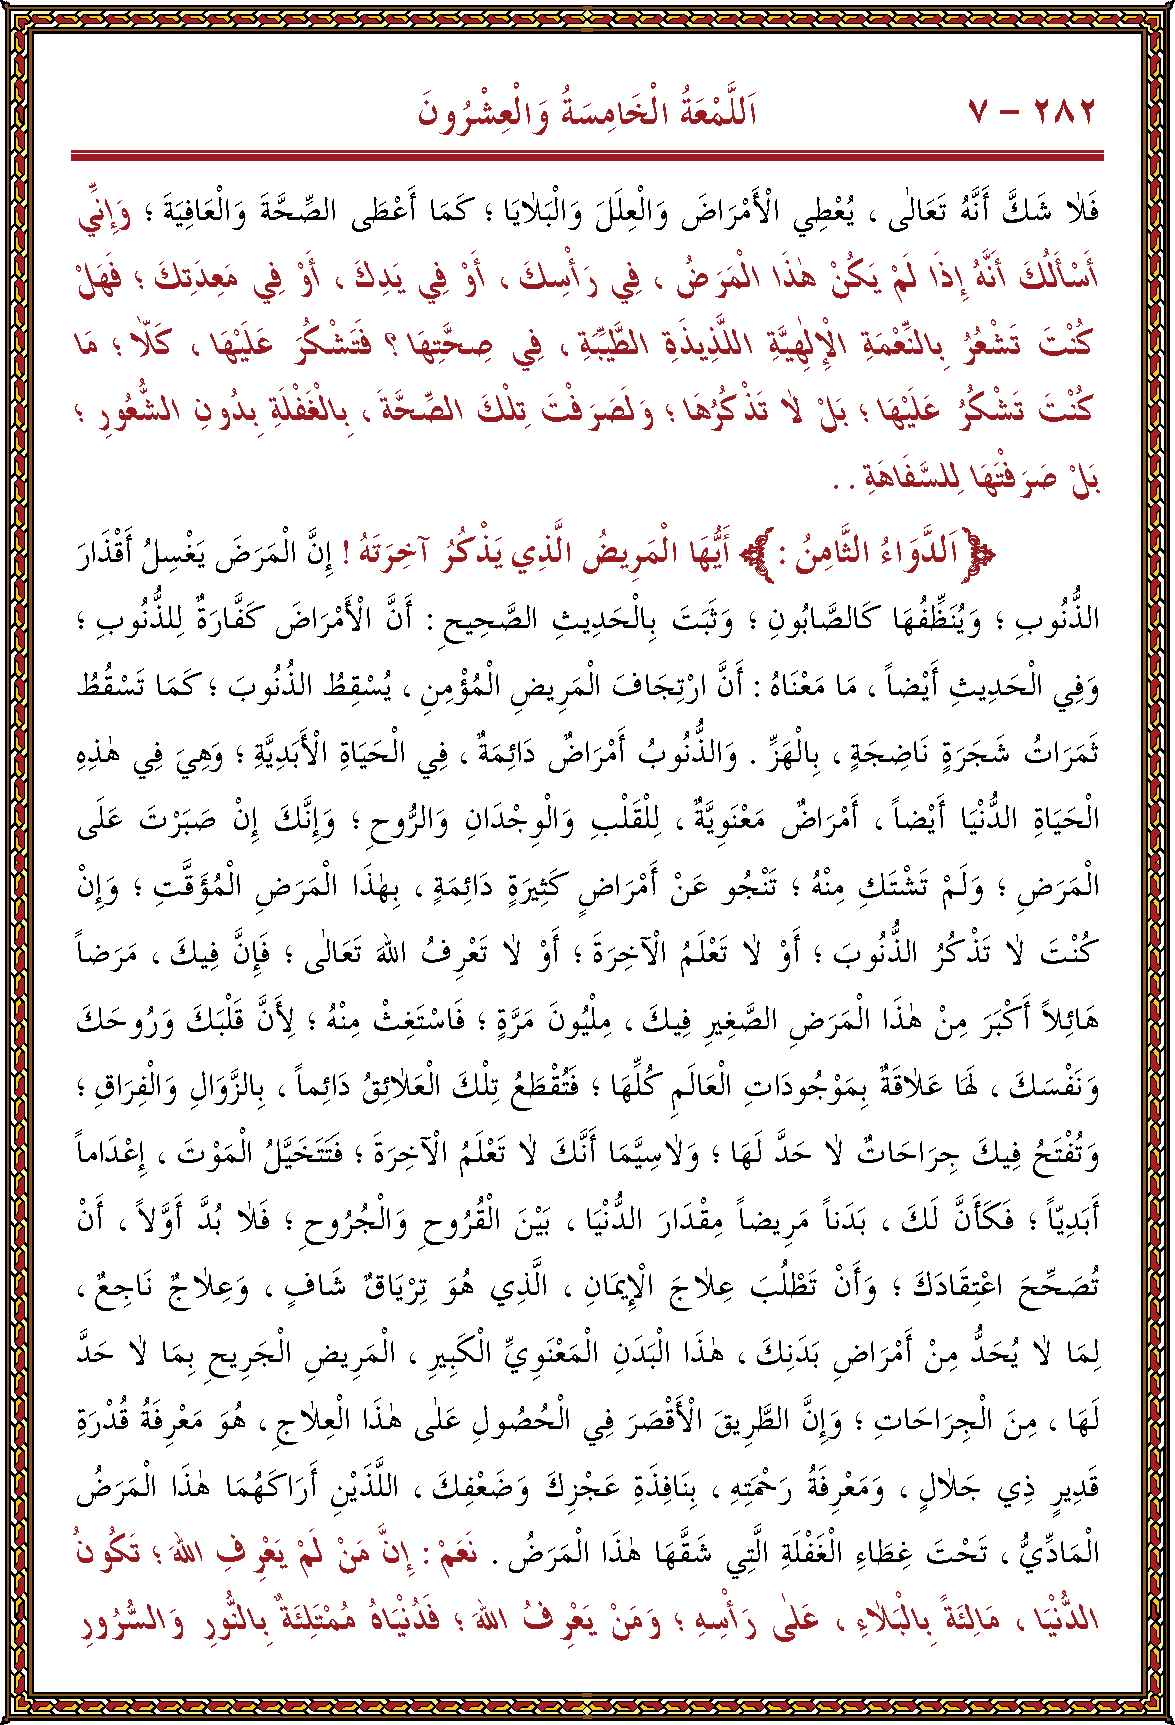 ٢٨٢ – ٧ اَللَّمْعَةُ الْخَامِسَةُ وَالْعِشْرُونَ
فَلاَ شَكَّ أَنَّهُ تَعَالٰى ، يُعْطِي الْأَمْرَاضَ وَالْعِلَلَ وَالْبَلاَيَا ؛ كَمَا أَعْطَى الصِّحَّةَ وَالْعَافِيَةَ ؛ وَإِنِّي
أَسْأَلُكَ أَنَّهُ إِذَا لَمْ يَكُنْ هٰذَا الْمَرَضُ ، فِي رَأْسِكَ ، أَوْ فِي يَدِكَ ، أَوْ فِي مَعِدَتِكَ ؛ فَهَلْ
كُنْتَ تَشْعُرُ بِالنِّعْمَةِ الْإِلٰهِيَّةِ اللَّذِيذَةِ الطَّيِّبَةِ ، فِي صِحَّتِهَا ؟ فَتَشْكُرَ عَلَيْهَا ، كَلاَّ ؛ مَا
كُنْتَ تَشْكُرُ عَلَيْهَا ؛ بَلْ لاَ تَذْكُرُهَا ؛ وَلَصَرَفْتَ تِلْكَ الصِّحَّةَ ، بِالْغَفْلَةِ بِدُونِ الشُّعُورِ ؛
بَلْ صَرَفْتَهَا لِلسَّفَاهَةِ . .
﴿اَلدَّوَاءُ الثَّامِنُ : ﴾ أَيُّهَا الْمَرِيضُ الَّذِي يَذْكُرُ آخِرَتَهُ ! إِنَّ الْمَرَضَ يَغْسِلُ أَقْذَارَ
الذُّنُوبِ ؛ وَيُنَظِّفُهَا كَالصَّابُونِ ؛ وَثَبَتَ بِالْحَدِيثِ الصَّحِيحِ : أَنَّ الْأَمْرَاضَ كَفَّارَةٌ لِلذُّنُوبِ ؛
وَفِي الْحَدِيثِ أَيْضاً ، مَا مَعْنَاهُ : أَنَّ ارْتِجَافَ الْمَرِيضِ الْمُؤْمِنِ ، يُسْقِطُ الذُّنُوبَ ؛ كَمَا تَسْقُطُ
ثَمَرَاتُ شَجَرَةٍ نَاضِجَةٍ ، بِالْهَزِّ . وَالذُّنُوبُ أَمْرَاضٌ دَائِمَةٌ ، فِي الْحَيَاةِ الْأَبَدِيَّةِ ؛ وَهِيَ فِي هٰذِهِ
الْحَيَاةِ الدُّنْيَا أَيْضاً ، أَمْرَاضٌ مَعْنَوِيَّةٌ ، لِلْقَلْبِ وَالْوِجْدَانِ وَالرُّوحِ ؛ وَإِنَّكَ إِنْ صَبَرْتَ عَلَى
الْمَرَضِ ؛ وَلَمْ تَشْتَكِ مِنْهُ ؛ تَنْجُو عَنْ أَمْرَاضٍ كَثِيرَةٍ دَائِمَةٍ ، بِهٰذَا الْمَرَضِ الْمُؤَقَّتِ ؛ وَإِنْ
كُنْتَ لاَ تَذْكُرُ الذُّنُوبَ ؛ أَوْ لاَ تَعْلَمُ الْآخِرَةَ ؛ أَوْ لاَ تَعْرِفُ اللهَ تَعَالٰى ؛ فَإِنَّ فِيكَ ، مَرَضاً
هَائِلاً أَكْبَرَ مِنْ هٰذَا الْمَرَضِ الصَّغِيرِ فِيكَ ، مِلْيُونَ مَرَّةٍ ؛ فَاسْتَغِثْ مِنْهُ ؛ لِأَنَّ قَلْبَكَ وَرُوحَكَ
وَنَفْسَكَ ، لَهَا عَلاَقَةٌ بِمَوْجُودَاتِ الْعَالَمِ كُلِّهَا ؛ فَتُقْطَعُ تِلْكَ الْعَلاَئِقُ دَائِماً ، بِالزَّوَالِ وَالْفِرَاقِ ؛
وَتُفْتَحُ فِيكَ جِرَاحَاتٌ لاَ حَدَّ لَهَا ؛ وَلاَسِيَّمَا أَنَّكَ لاَ تَعْلَمُ الْآخِرَةَ ؛ فَتَتَخَيَّلُ الْمَوْتَ ، إِعْدَاماً
أَبَدِيّاً ؛ فَكَأَنَّ لَكَ ، بَدَناً مَرِيضاً مِقْدَارَ الدُّنْيَا ، بَيْنَ الْقُرُوحِ وَالْجُرُوحِ ؛ فَلاَ بُدَّ أَوَّلاً ، أَنْ
تُصَحِّحَ اعْتِقَادَكَ ؛ وَأَنْ تَطْلُبَ عِلاَجَ الْإِيمَانِ ، الَّذِي هُوَ تِرْيَاقٌ شَافٍ ، وَعِلاَجٌ نَاجِعٌ ،
لِمَا لاَ يُحَدُّ مِنْ أَمْرَاضِ بَدَنِكَ ، هٰذَا الْبَدَنِ الْمَعْنَوِيِّ الْكَبِيرِ ، الْمَرِيضِ الْجَرِيحِ بِمَا لاَ حَدَّ
لَهَا ، مِنَ الْجِرَاحَاتِ ؛ وَإِنَّ الطَّرِيقَ الْأَقْصَرَ فِي الْحُصُولِ عَلٰى هٰذَا الْعِلاَجِ ، هُوَ مَعْرِفَةُ قُدْرَةِ
قَدِيرٍ ذِي جَلاَلٍ ، وَمَعْرِفَةُ رَحْمَتِهِ ، بِنَافِذَةِ عَجْزِكَ وَضَعْفِكَ ، اللَّذَيْنِ أَرَاكَهُمَا هٰذَا الْمَرَضُ
الْمَادِّيُّ ، تَحْتَ غِطَاءِ الْغَفْلَةِ الَّتِي شَقَّهَا هٰذَا الْمَرَضُ . نَعَمْ : إِنَّ مَنْ لَمْ يَعْرِفِ اللهَ ؛ تَكُونُ
الدُّنْيَا ، مَالِئَةً بِالْبَلاَءِ ، عَلٰى رَأْسِهِ ؛ وَمَنْ يَعْرِفُ اللهَ ؛ فَدُنْيَاهُ مُمْتَلِئَةٌ بِالنُّورِ وَالسُّرُورِ